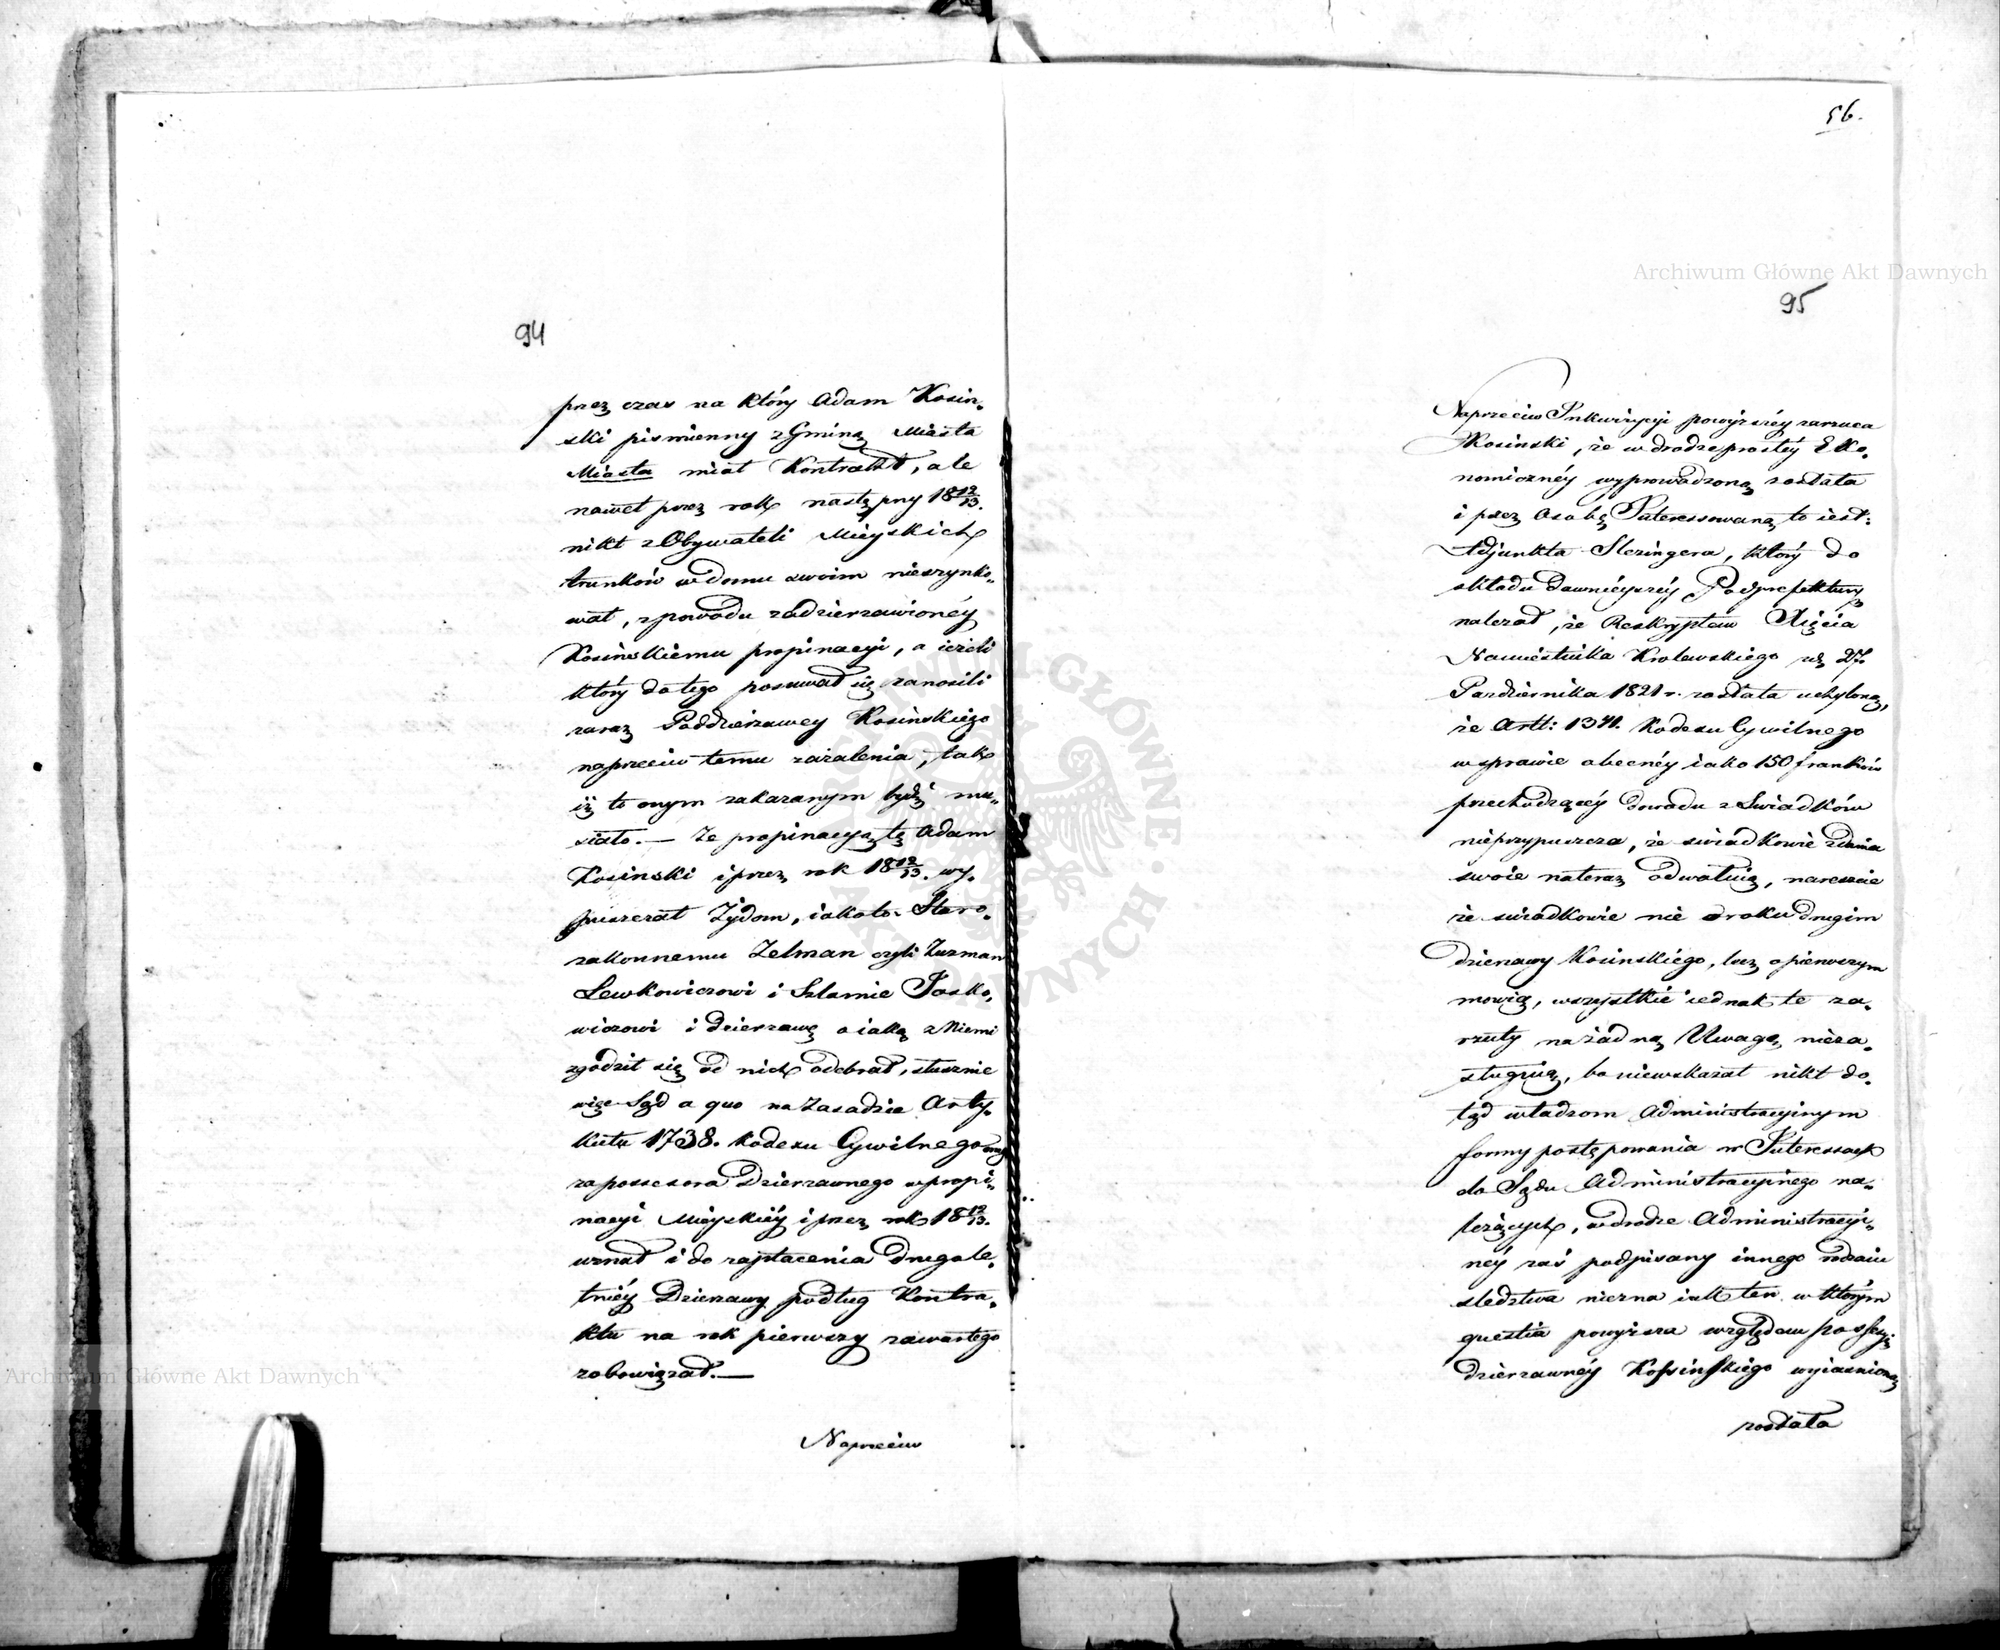 94
przez czas na który Adam Kosin-
ski pismienny z Gminą Miasta
Miasta miał Kontrakt, ale
nawet przez rok następny 18 12/13.
nikt z Obywateli Mieyskich
trunków w domu swoim nieszynko-
wał, z powodu zadzierzawionéy
Kosinskiemu propinacyi, a ieżeli
który do tego posuwał się zanosili
zaraz Poddzierzawcy Kosinskiego
naprzeciw temu zażalenia, tak
iż to onym zakazanym bydź mu-
siało. — Ze propinacyą tę Adam
Kosinski i przez rok 18 12/13. wy-
puszczał Żydom, iakoto: Staro-
zakonnemu Zelman czyli Zusman
Lewkowiczowi i Szlamie Josko-
wiczowi i dzierzawę o iaką z Niemi
zgodził się od nich odebrał, słusznie
więc Sąd a quo na Zasadzie Arty-
kułu 1738. Kodexu Cywilnego
za possesora Dzierzawnego w propi-
nacyi Mieyskiéy i przez rok 18 12/13.
uznał i do zapłacenia drugole-
tniéy Dzierzawy podług Kontra-
ktu na rok pierwszy zawartego
zobowiązał. —
Naprzeciw
56.
Archiwum Główne Akt Dawnych
95
Naprzeciw Inkwizycyi powyższéy zarzuca
Kosinski, że w drodze prostéy Eko-
nomicznéy wyprowadzoną została
i przez Osobę Interessowaną to iest:
Adjunkta Slezingera, który do
składu dawniéyszéy Podprefektury
należał, że Reskryptem Xięcia
Namiestnika Krolewskiego z 27.
Pazdziernika 1821 r. została uchyloną,
że Artt: 1341. Kodexu Cywilnego
w sprawie obecnéy iako 150 franków
przechodzącéy dowodu z Swiadków
nieprzypuszcza, że swiadkowie zdania
swoie nateraz odwołuią, nareszcie
że swiadkowie nie o roku drugim
Dzierzawy Kosinskiego, lecz o pierwszym
mowią, wszystkie iednak te za-
rzuty na żadną Uwagę nieza-
sługuią, bo niewskazał nikt do-
tąd władzom Administracyinym
formy postępowania w Interessach
do Sądu Administracyinego na-
leżących, w drodze Administracyi-
néy zaś podpisany innego rodzaiu
sledztwa niezna iak ten w którym
questia powyższa względem possessyi
dzierzawnéy Kossinskiego wyiaśnioną
została
Archiwum Główne Akt Dawnych